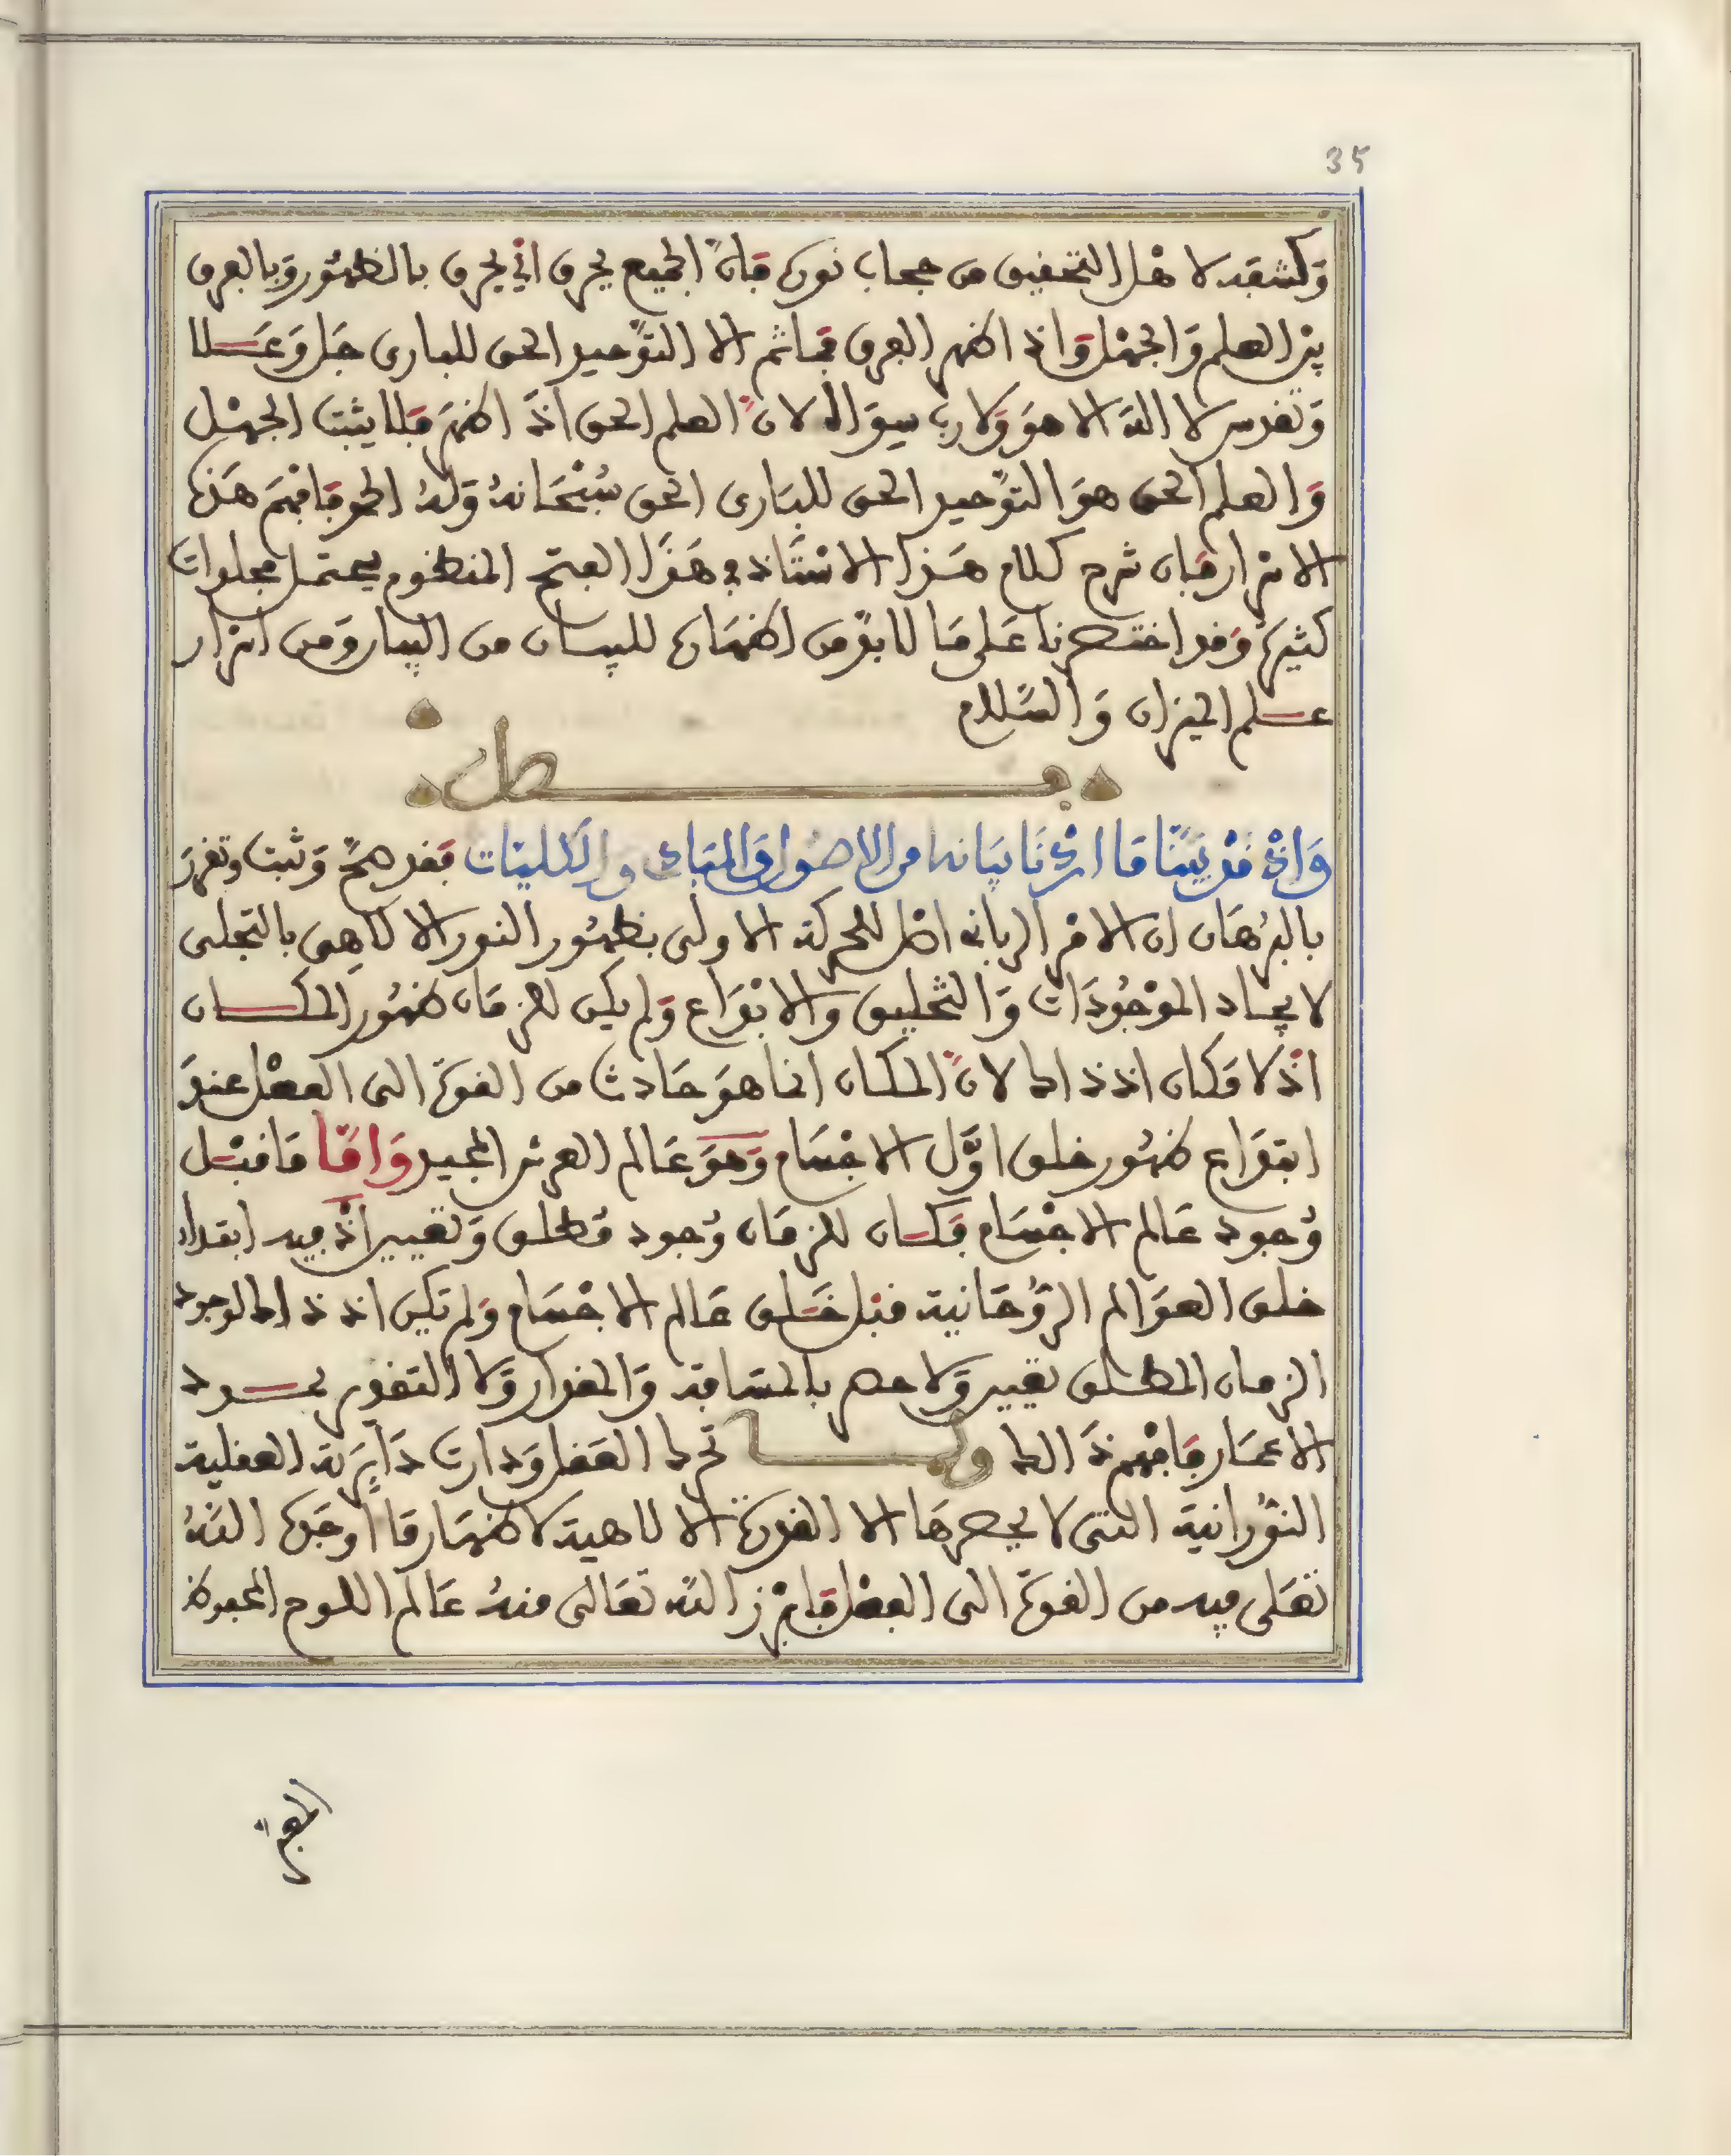 35
وَكشفه لاهْل التحقيق من حجاب نوره فإنّ الجميع يحرق اذ يحرق بالظهُور وَبالعرق
بيْن العلم وَالجهْل وَاذا ظهر العرق فما ثم الا التوْحيد الحق للبارى جَل وَعَلا
وَتقدس لا اله الا هوَ وَلا رب سوَاه لانّ العلم الحق اذا ظهر فلا يثبت الجهْل
وَالعلم الحق هوَ التوْحيد الحق للبَارى الحق سُبْحَانهُ وَلهُ الحق فافهَم هَذه
الاسْرار فإن شرح كلام هَذا الاسْتَاذ في هَذا الفتح المنظوم يحتمل مجلدات
كثيرة وَقد اختصرنا عَلى مَا لا بدّ من اظهَاره للبيان من البيان وَمن اسْرار
علم الميزان وَالسَّلام
فصل
وَاذْ قدْ بيَّنا مَا اردْنَا بيَانه من الاصُول وَالمبَادى وَالكليَات فقد صحّ وَثبت وَتقرّرَ
بالبرْهَان ان الامْر الربانى اصْل للحركة الاولى بظهُور النور الالاهِى بالتجلى
لايجاد الموْجُودَات وَالتخليق وَالابْدَاع وَلم يكن للزمَان ظهُور المكان
اذ لا مَكان اذ ذاك لانّ المكان انما هوَ حَادث من القوة الى الفعْل عندَ
ابتدَاع ظهُور خلق اوّل الاجْسَام وَهوَ عَالم العرش المجيد وَامَّا مَا قبْل
وُجود عَالم الاجْسَام فكان للزمَان وُجود مُطلق وَتغيير اذ فيه ابتداء
خلق العوَالم الرُّوحَانية قبْل خَلق عَالم الاجْسَام وَلم تكن اذ ذاك لوجود
الزمان المطلق تغيير وَلا حصر بالمسَافة وَالمقدار وَلا التقدير بحدود
الاعمَار فافْهم ذَلك ولما تحرك العَقل وَدارت دَايرَته العقلية
النوُرانية التى لا يحصرهَا الا القدرَة الالاهية لاظهَار مَا اوجَده اللهُ
تعَلى فيه من القوة الى الفعْل فابْرز الله تعَالى منهُ عَالم اللوح المحفوظ